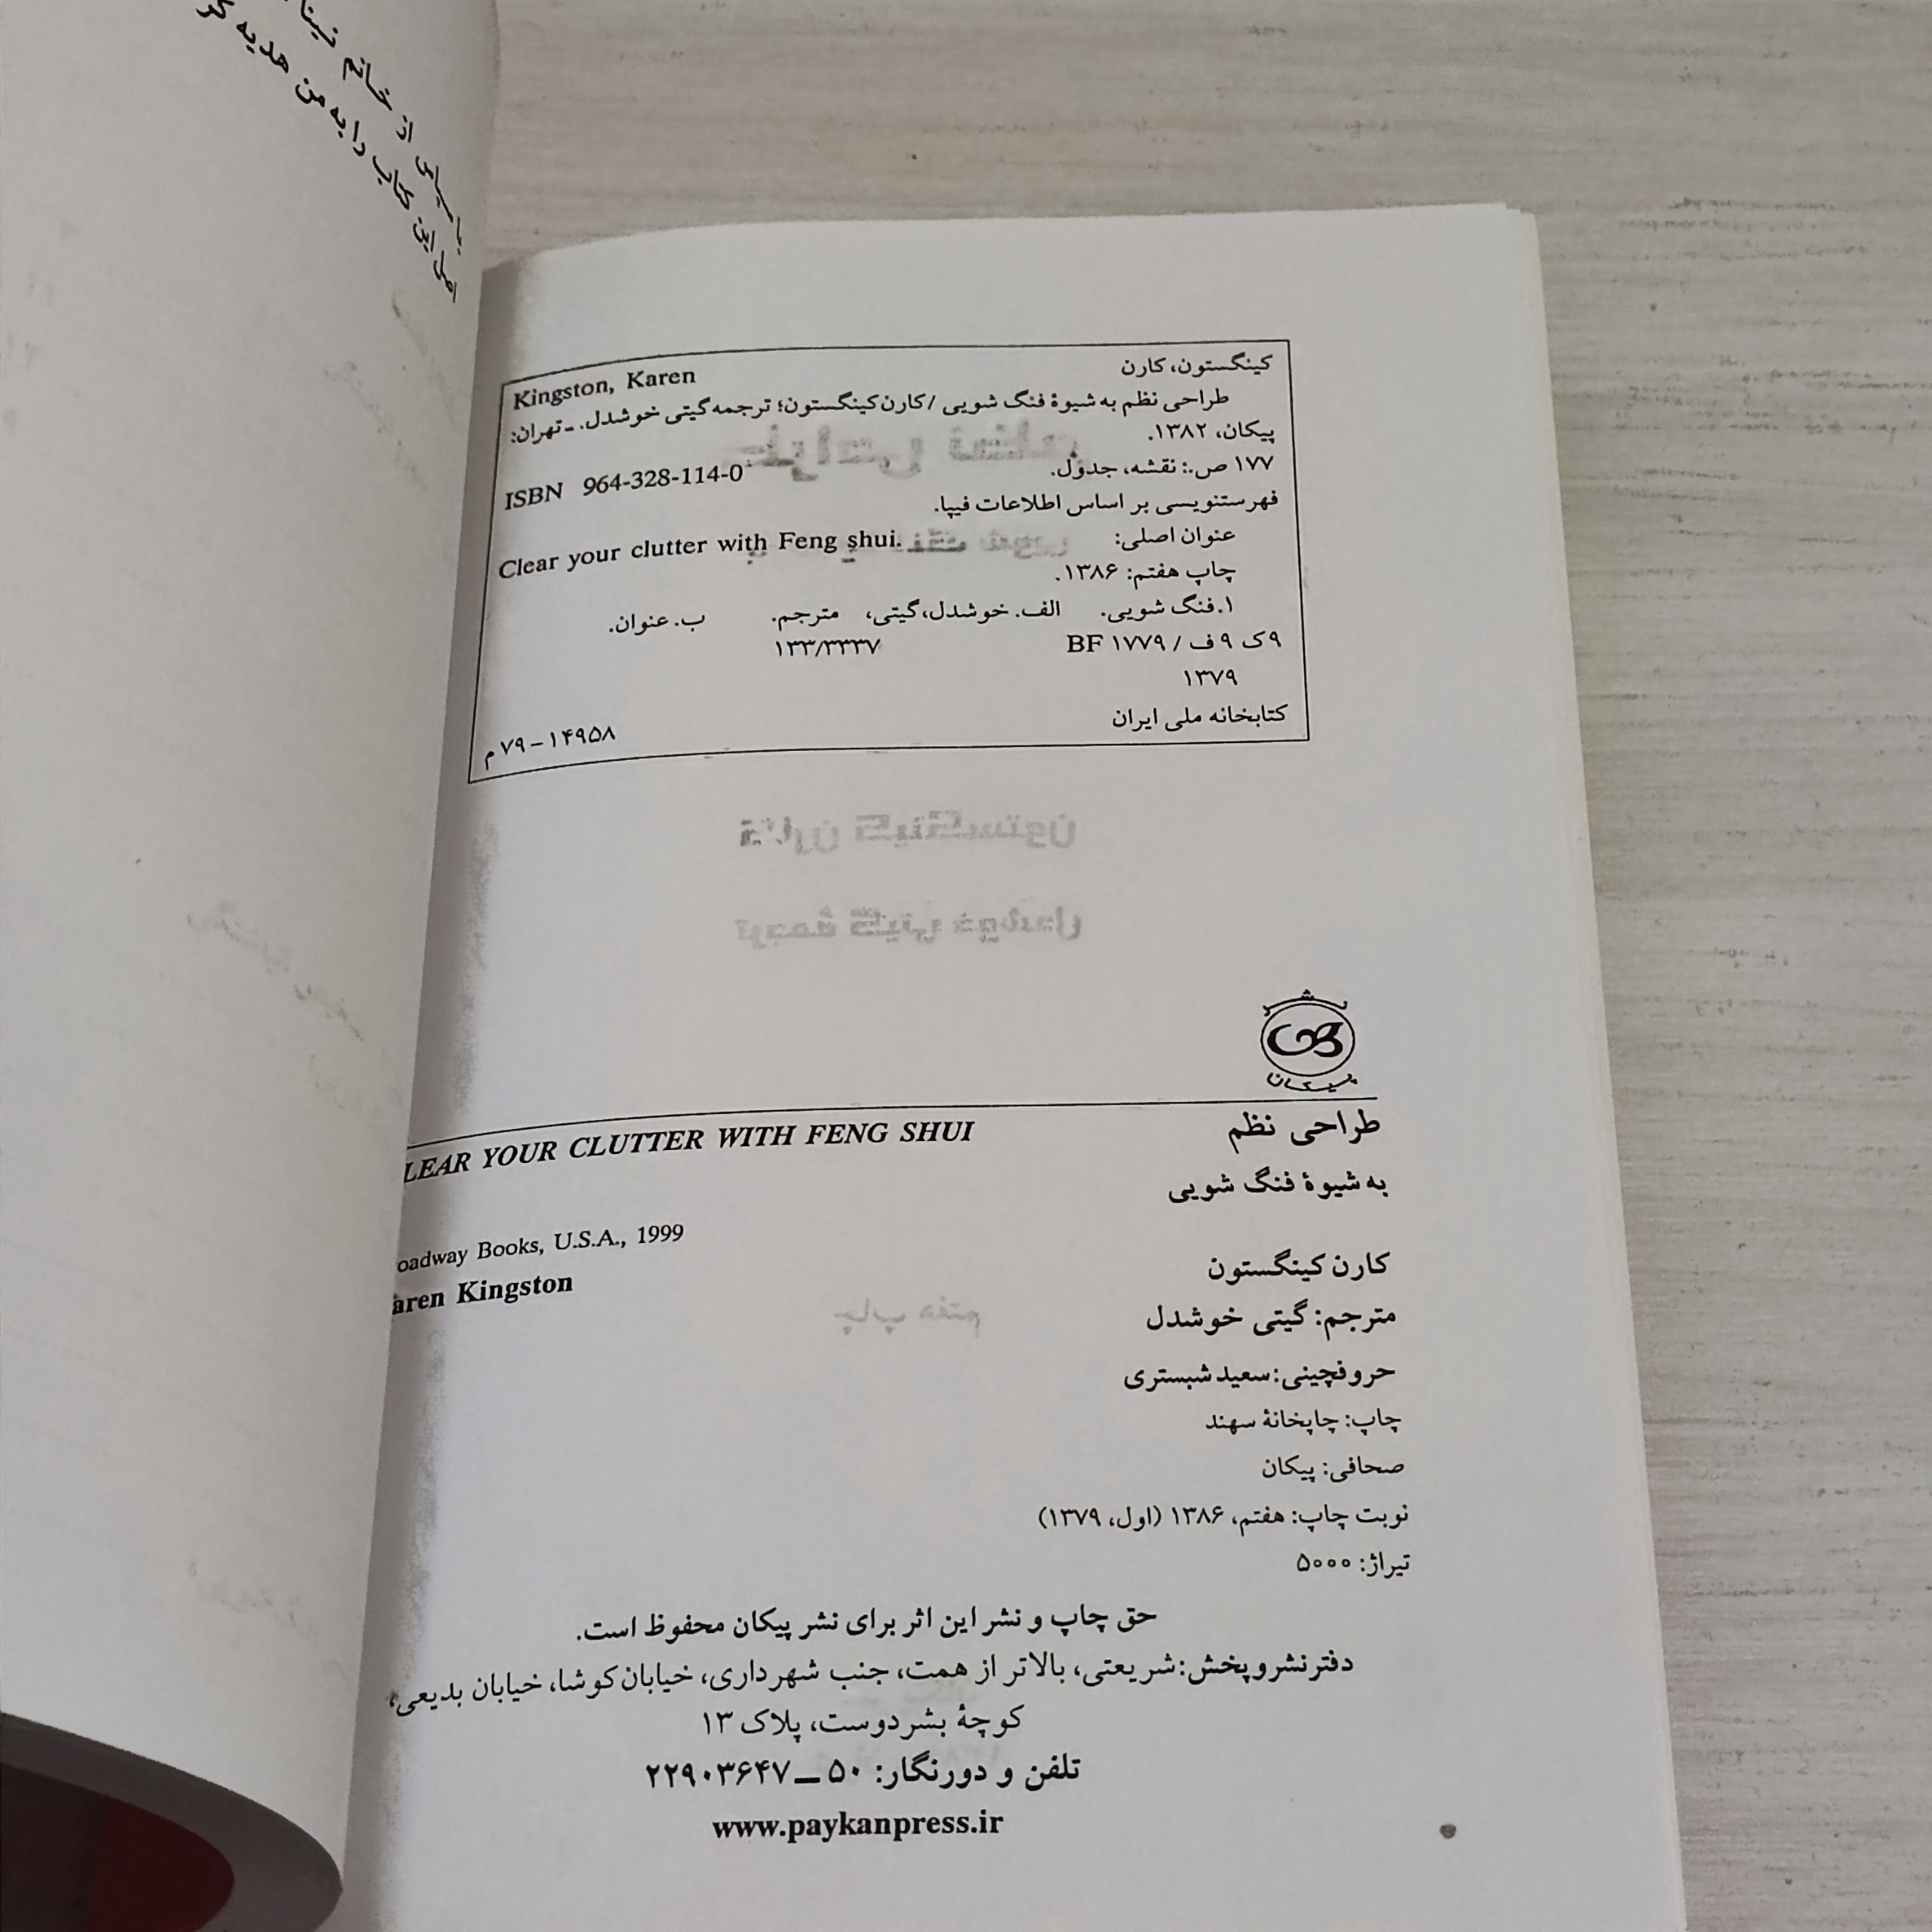 سپاسی از خانم
این کتاب را به من هدیه
کینگستون، کارن Kingston, Karen
طراحی نظم به شیوۀ فنگ شویی / کارن کینگستون؛ ترجمه گیتی خوشدل. ـ تهران:
پیکان، ۱۳۸۲.
۱۷۷ ص.: نقشه، جدول. ISBN 964-328-114-0
فهرستنویسی بر اساس اطلاعات فیپا.
عنوان اصلی: Clear your clutter with Feng shui.
چاپ هفتم: ۱۳۸۶.
۱. فنگ شویی. الف. خوشدل، گیتی، مترجم. ب. عنوان.
۹ک ۹ف / ۱۷۷۹ BF ۱۳۳/۳۳۳۷
۱۳۷۹
کتابخانه ملی ایران ۱۴۹۵۸–۷۹م
نشر
پیکان
طراحی نظم LEAR YOUR CLUTTER WITH FENG SHUI
به شیوۀ فنگ شویی
oadway Books, U.S.A., 1999
کارن کینگستون aren Kingston
مترجم: گیتی خوشدل
حروفچینی: سعید شبستری
چاپ: چاپخانۀ سهند
صحافی: پیکان
نوبت چاپ: هفتم، ۱۳۸۶ (اول، ۱۳۷۹)
تیراژ: ۵۰۰۰
حق چاپ و نشر این اثر برای نشر پیکان محفوظ است.
دفتر نشر و پخش: شریعتی، بالاتر از همت، جنب شهرداری، خیابان کوشا، خیابان بدیعی،
کوچۀ بشردوست، پلاک ۱۳
تلفن و دورنگار: ۵۰ ــ ۲۲۹۰۳۶۴۷
www.paykanpress.ir